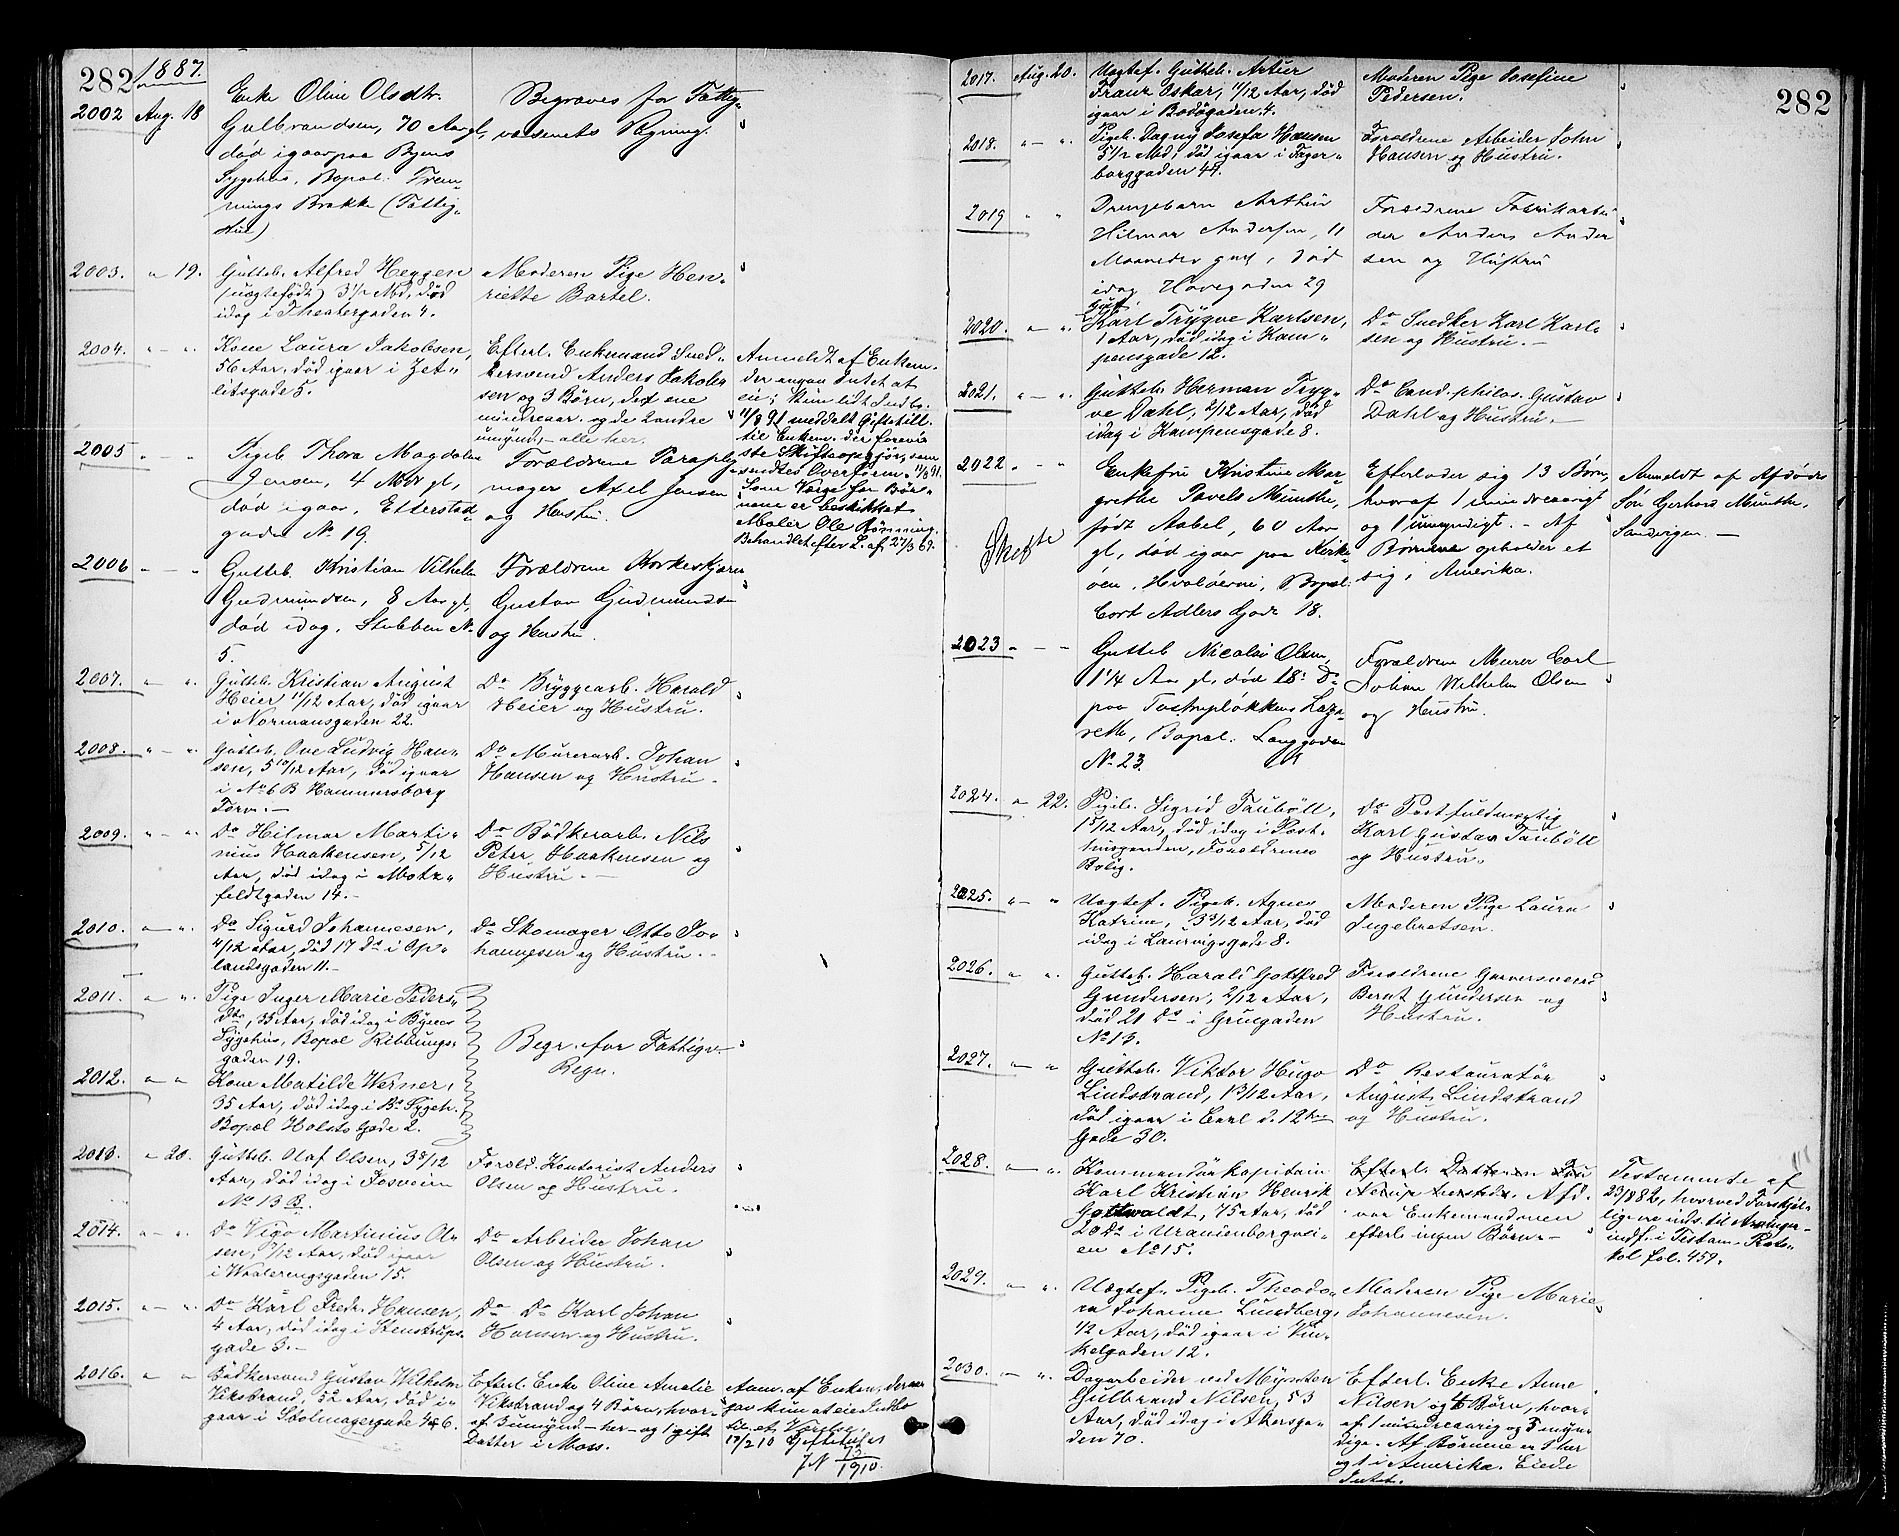 282 1887.
2002 Aug. 18
Enke Oline Olsdtr.
Gulbrandsen, 70 Aar gl,
død igaar paa Byens
Sygehus, Bopæl: Trem-
nings Brakke (Fattig-
Begraves for Fattig-
væsenets Regning.
2003. " 19.
Gutteb. Alfred Heggen
(uægtefødt) 3 1/2 Md, død
idag i Theatergaden 4.
Moderen Pige Hen-
riette Bartel.
2004. " - "
Kone Laura Jakobsen,
56 Aar, død igaar i Zet-
litzgade 5.
Efterl. Enkemand Sned-
kersvend Anders Jakob-
sen og 3 Børn, det ene
mindreaar. og de 2 andre
umynd, - alle her.
Anmeldt af Enkem.
der angav Intet at
eie; Kun lidt Indbo.
11/8 91 meddelt Gifte till.
til Enkem. der forevi-
ste Skifteopgjør, som
sendtes Overform. 11/8 91.
Som Værge for Bør-
nene er beskikket
Maler Ole Rønning.
Behandlet efter L. af 27/3 69.
2005 " - "
Pigeb Thora Magdalene
Jensen, 4 Mdr gl,
død igaar, Etterstad-
gade No 19.
Forældrene Paraply-
mager Axel Jensen
og Hustru.
2006 - - "
Gutteb. Kristian Vilhelm
Gudmundsen, 8 Aar gl,
død idag, Stubben No
5.
Forældrene Korkeskjærer
Gustav Gudmundsen
og Hustru.
2007. " - "
Gutteb. Kristian August
Heier 11/12 Aar, død igaar
i Normansgaden 22.
Do Bryggearb. Harald
Heier og Hustru.
2008. " - "
Gutteb. Ove Ludvig Han-
sen, 5 10/12 Aar, død igaar
i No 6 B Hammersborg
Torv. -
Do Murerarb. Johan
Hansen og Hustru.
2009. " - "
Do Hilmar Marti-
nius Haakensen, 5/12
Aar, død idag i Motz-
feldtgaden 14. -
Do Bødkerarb. Nils
Peter Haakensen og
Hustru. -
2010. " - "
Do Sigurd Johannesen,
4/12 Aar, død 17 Ds i Op-
landsgaden 11. -
Do Skomager Otto Jo-
hannesen og Hustru. -
2011. " "
Pige Inger Marie Peders-
dtr, 35 Aar, død idag i Byens
Sygehus, Bopæl Ribbungs-
gaden 19.
Begr. for Fattigv.
Regn.
2012. " "
Kone Matilde Werner,
35 Aar, død idag i Bs Sygeh.
Bopæl Holsts Gade 2.
2013. " 20.
Gutteb. Olaf Olsen, 3 8/12
Aar, død idag i Fosveien
No 13 B.
Foræld. Kontorist Anders
Olsen og Hustru.
2014. " - "
Do Vigo Martinius Ol-
sen, 7/12 Aar, død igaar
i Waalerengsgaden 15.
Do Arbeider Johan
Olsen og Hustru.
2015. " - "
Do Karl Fredr. Hansen,
4 Aar, død idag i Stenstrups-
gade 3. -
Do Do Karl Johan
Hansen og Hustru.
2016. " "
Bødkersvend Gustav Wilhelm
Vikstrand, 52 Aar, død i-
gaar i Skolmagergade 46.
Efterl. Enke Oline Amalie
Vikstrand og 4 Børn, hvor-
af 3 umynd - her - og 1 gift
Datter i Moss.
Anm. af Enken, der an-
gav kun at eie Indbo
til et Værelse.
17/2 10 Gifteatt
JN 1910.
282
2017. Aug. 20.
Uægtef. Gutteb. Artur
Franz Oskar, 7/12 Aar, død
igaar i Bodøgaden 4.
Moderen Pige Josefine
Pedersen.
2018. " - "
Pigeb. Dagny Josefa Hansen
3 1/2 Md, død igaar i Fager-
borggaden 44.
Forældrene Arbeider John
Hansen og Hustru.
2019 " "
Drengebarn Arthur
Hilmar Andersen, 11
Maaneder gml, død
idag Havegaden 29
Forældrene Fabrikarbei-
der Anders Ander
sen og Hustru
2020. " - "
Gut.
Karl Trygve Karlsen,
1 Aar, død idag i Kam-
pensgade 12.
Do Snedker Karl Karl-
sen og Hustru. -
2021. " - "
Gutteb. Herman Tryg-
ve Dahl, 2/12 Aar, død
idag i Kampensgade 8.
Do Cand. philos. Gustav
Dahl og Hustru. -
2022. " "
Skifte
Enkefru Kristine Mar-
grethe Pavels Munthe,
født Aabel, 60 Aar
gl, død igaar paa Kirke-
øen, Hvaløerne, Bopæl:
Cort Adlers Gade 18.
Efterlader sig 13 Børn,
hvoraf 1 mindreaarigt
og 1 umyndigt. - Af
Børnene opholder et
sig i Amerika.
Anmeldt af Afdødes
Søn Gerhard Munthe,
Sandvigen. -
2023 " - -
Gutteb Nicolai Olsen,
1 1/4 Aar gl, død 18: Ds
paa Tostrupløkkens Laza-
rette, Bopæl: Langgaden
No 23.
Forældrene Murer Carl
Johan Wilhelm Olsen
og Hustru.
2024. " 22.
Pigeb. Sigrid Taubøll,
1 5/12 Aar, død idag i Post-
husgaarden, Forældrenes
Bolig.
Do Postfuldmægtig
Karl Gustav Taubøll
og Hustru.
2025. " - "
Uægtef. Pigeb. Agnes
Katrine, 3 3/12 Aar, død
idag i Laurvigsgade 8.
Moderen Pige Laura
Ingebretsen.
2026. " "
Gutteb. Harald Gottfred
Gundersen, 2/12 Aar,
død 21 Ds i Gruegaden
No 13.
Forældrene Garversvend
Bernt Gundersen og
Hustru.
2027. " - "
Gutteb. Viktor Hugo
Lindstrand, 1 3/12 Aar,
død igaar i Carl d. 12tes
Gade 30.
Do Restauratør
August Lindstrand
og Hustru.
2028. " - "
Kommandørkapitain
Karl Kristian Henrik
Gottwaldt, 75 Aar, død
20 Ds i Uranienborgvei-
en No 15.
Efterl. Datteren Fru
Nerup hersteds. Afd.
var Enkemand men
efterl. ingen Børn. -
Testamente af
23/8 82, hvorved Forskjel-
lige ere inds. til Arvinger -
indf. i Testam. Proto-
kol fol. 459.
2029. " "
Uægtef. Pigeb. Theodo-
ra Johanne Lundberg,
1/2 Aar, død igaar i Vin-
kelgaden 12.
Moderen Pige Marie
Johannesen.
2030. " - "
Dagarbeider ved Mynten
Gulbrand Nilsen, 53
Aar, død idag i Akersga-
den 70.
Efterl. Enke Anne
Nilsen og 6 Børn, hvor-
af 1 mindreaarig og 5 myn-
dige. Af Børnene er 5 her
og 1 i Amerika. Eiede
Intet.